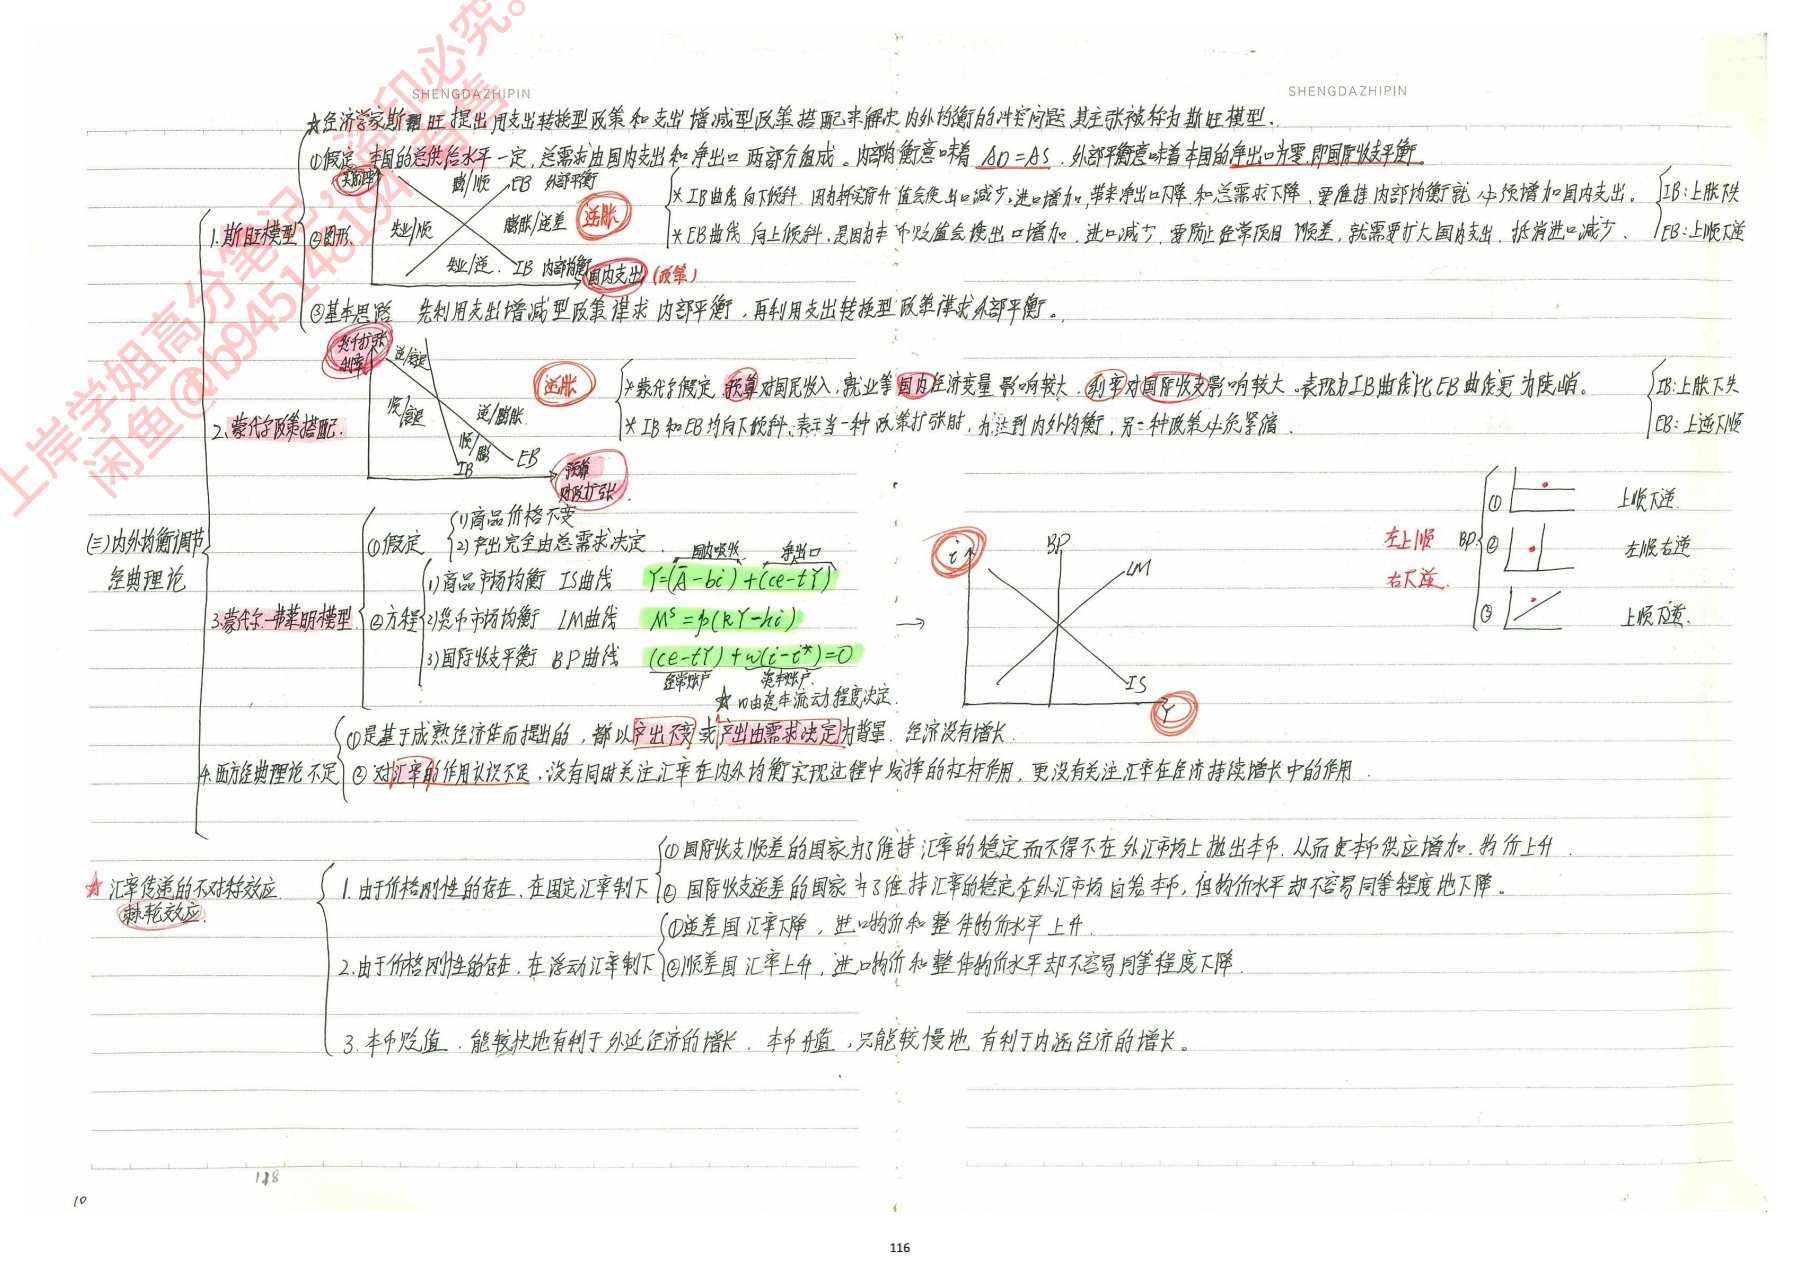 SHENGDAZHIPIN
SHENGDAZHIPIN
上岸学姐高分笔记，盗印必究。
闲鱼@b945148194有售
☆经济学家斯旺提出用支出转换型政策和支出增减型政策搭配来解决内外均衡的冲突问题,其主张被称为斯旺模型.
(三)内外均衡调节
经典理论
1.斯旺模型
①假定 本国的总供给水平一定,总需求由国内支出和净出口两部分组成。内部均衡意味着 AD=AS. 外部平衡意味着本国的净出口为零,即国际收支平衡。
②图形
实际汇率
膨/顺
EB 外部平衡
失业/顺
膨胀/逆差
失业/逆
IB 内部均衡
国内支出
(政策)
逆胀
* IB曲线向下倾斜. 因为析实际升值会使出口减少,进口增加,带来净出口下降和总需求下降,要维持内部均衡就必须增加国内支出。
* EB曲线 向上倾斜,是因为率贬值会使出口增加,进口减少,要防止经常项目顺差,就需要扩大国内支出,抵消进口减少.
IB:上胀下失
EB:上顺下逆
③基本思路 先利用支出增减型政策谋求内部平衡,再利用支出转换型政策谋求外部平衡。
2.蒙代尔政策搭配.
货币扩张
利率
逆/衰退
顺/衰退
逆/膨胀
顺/膨
IB
EB
预算
财政扩张
逆胀
*蒙代尔假定.预算对国民收入,就业等国内经济变量影响较大.利率对国际收支影响较大.表现为IB曲线比EB曲线更为陡峭。
* IB和EB均向下倾斜,表示当一种政策扩张时,为达到内外均衡,另一种政策必须紧缩.
IB:上胀下失
EB:上逆下顺
3.蒙代尔-弗莱明模型
①假定
1)商品价格不变
2)产出完全由总需求决定.
②方程
国内吸收
净出口
1)商品市场均衡 IS曲线 Y=(Ā-bi)+(ce-tY)
2)货币市场均衡 LM曲线 Mˢ=p(kY-hi)
3)国际收支平衡 BP曲线 (ce-tY)+w(i-i*)=0
经常账户
资本账户
☆ w由资本流动程度决定.
→
i
BP
LM
IS
Y
左上顺
右下逆.
BP
① 上顺下逆
② 左顺右逆
③ 上顺下逆.
4.西方经典理论不足
①是基于成熟经济体而提出的,都以产出不变或产出由需求决定为背景.经济没有增长.
②对汇率的作用认识不足,没有同时关注汇率在内外均衡实现过程中发挥的杠杆作用,更没有关注汇率在经济持续增长中的作用.
☆ 汇率传递的不对称效应
棘轮效应.
1.由于价格刚性的存在,在固定汇率制下
①国际收支顺差的国家为了维持汇率的稳定而不得不在外汇市场上抛出本币.从而使本币供应增加,物价上升.
② 国际收支逆差的国家为了维持汇率的稳定在外汇市场回笼本币,但物价水平却不容易同等程度地下降。
2.由于价格刚性的存在,在浮动汇率制下
①逆差国汇率下降,进口物价和整体物价水平上升.
②顺差国汇率上升,进口物价和整体物价水平却不容易同等程度下降.
3.本币贬值.能较快地有利于外延经济的增长.本币升值,只能较慢地有利于内涵经济的增长。
118
10
116